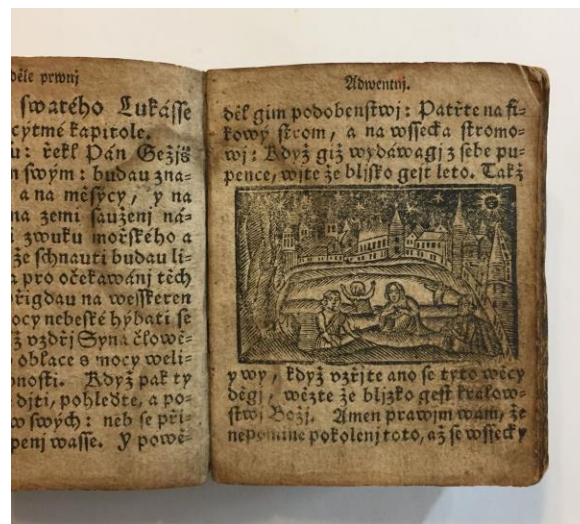 děle prwnj
swatého Lukásse
cytmé kapitole.
u: řekl Pán Gežjš
m swým: budau zna=
a na měsýcy, y na
na zemi sauženj ná=
i zwuku mořského a
že schnauti budau li=
a pro očekáwánj těch
přigdau na wesskeren
ocy nebeské hýbati se
ž vzdřj Syna člowě=
oblace s mocy weli=
bnosti. Když pak ty
djti, pohleďte, a po=
w swých: neb se při=
penj wasse. Y powě=
Adwentnj.
děl gim podobenstwj: Patřte na fi=
kowý strom, a na wssecka stromo=
wj: Když giž wydáwagj z sebe pu=
pence, wjte že bljsko gest leto. Takž
y wy, když vzřjte ano se tyto wěcy
děgj, wězte že bljzko gest králow=
stwj Božj. Amen prawjm wám, že
nepomine pokolenj toto, až se wssecky